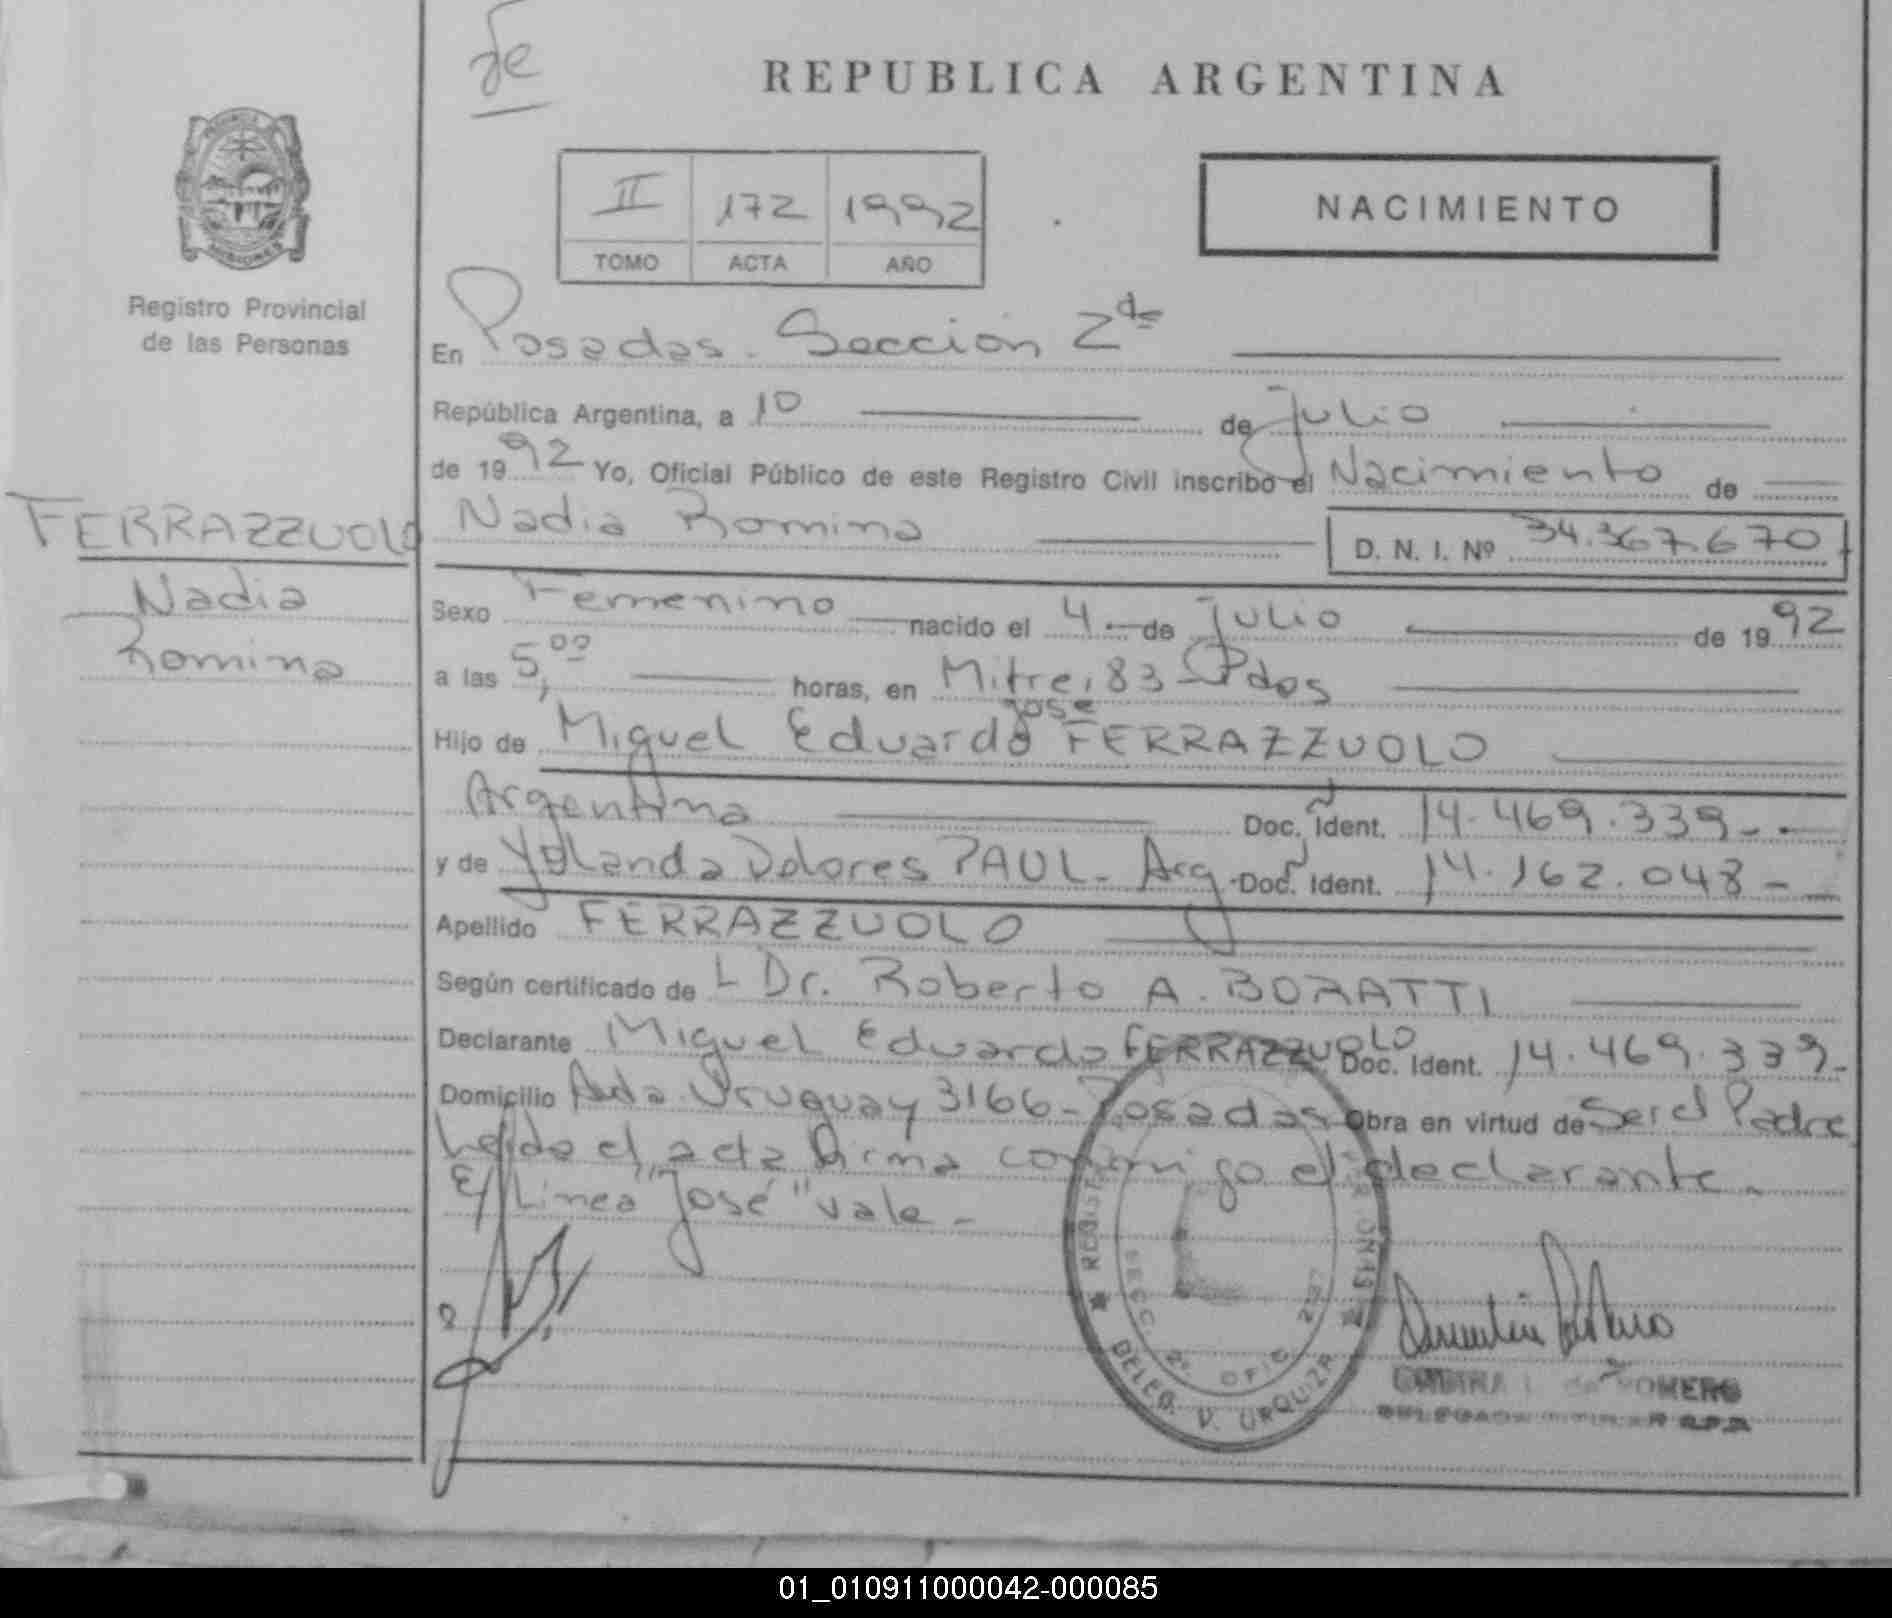 de
REPUBLICA ARGENTINA
II 172 1992
TOMO ACTA AÑO
NACIMIENTO
Registro Provincial
de las Personas
En Posadas. Sección 2da
República Argentina, a 10 de Julio
de 1992 Yo, Oficial Público de este Registro Civil inscribo el Nacimiento de
FERRAZZUOLO
Nadia
Romina
Nadia Romina D. N. I. Nº 34.367.670
Sexo Femenino nacido el 4 de Julio de 1992
a las 5,00 horas, en Mitre, 83 Pdas
José
Hijo de Miguel Eduardo FERRAZZUOLO
Argentina Doc. Ident. 14.469.339--
y de Yolanda Dolores PAUL- Arg. Doc. Ident. 14.162.048-
Apellido FERRAZZUOLO
Según certificado de L Dr. Roberto A. BORATTI
Declarante Miguel Eduardo FERRAZZUOLO Doc. Ident. 14.469.339-
Domicilio Avda. Uruguay 3166- Posadas Obra en virtud de Ser el Padre
Leída el acta firma conmigo el declarante.
E/Línea "José" vale-
SECC. 2º OFIC
DELEG. V. URQUIZA
de ROMERO
01_010911000042-000085